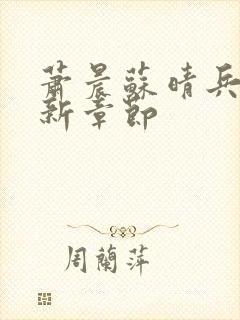 蕭晨蘇晴兵
新章節
周蘭萍